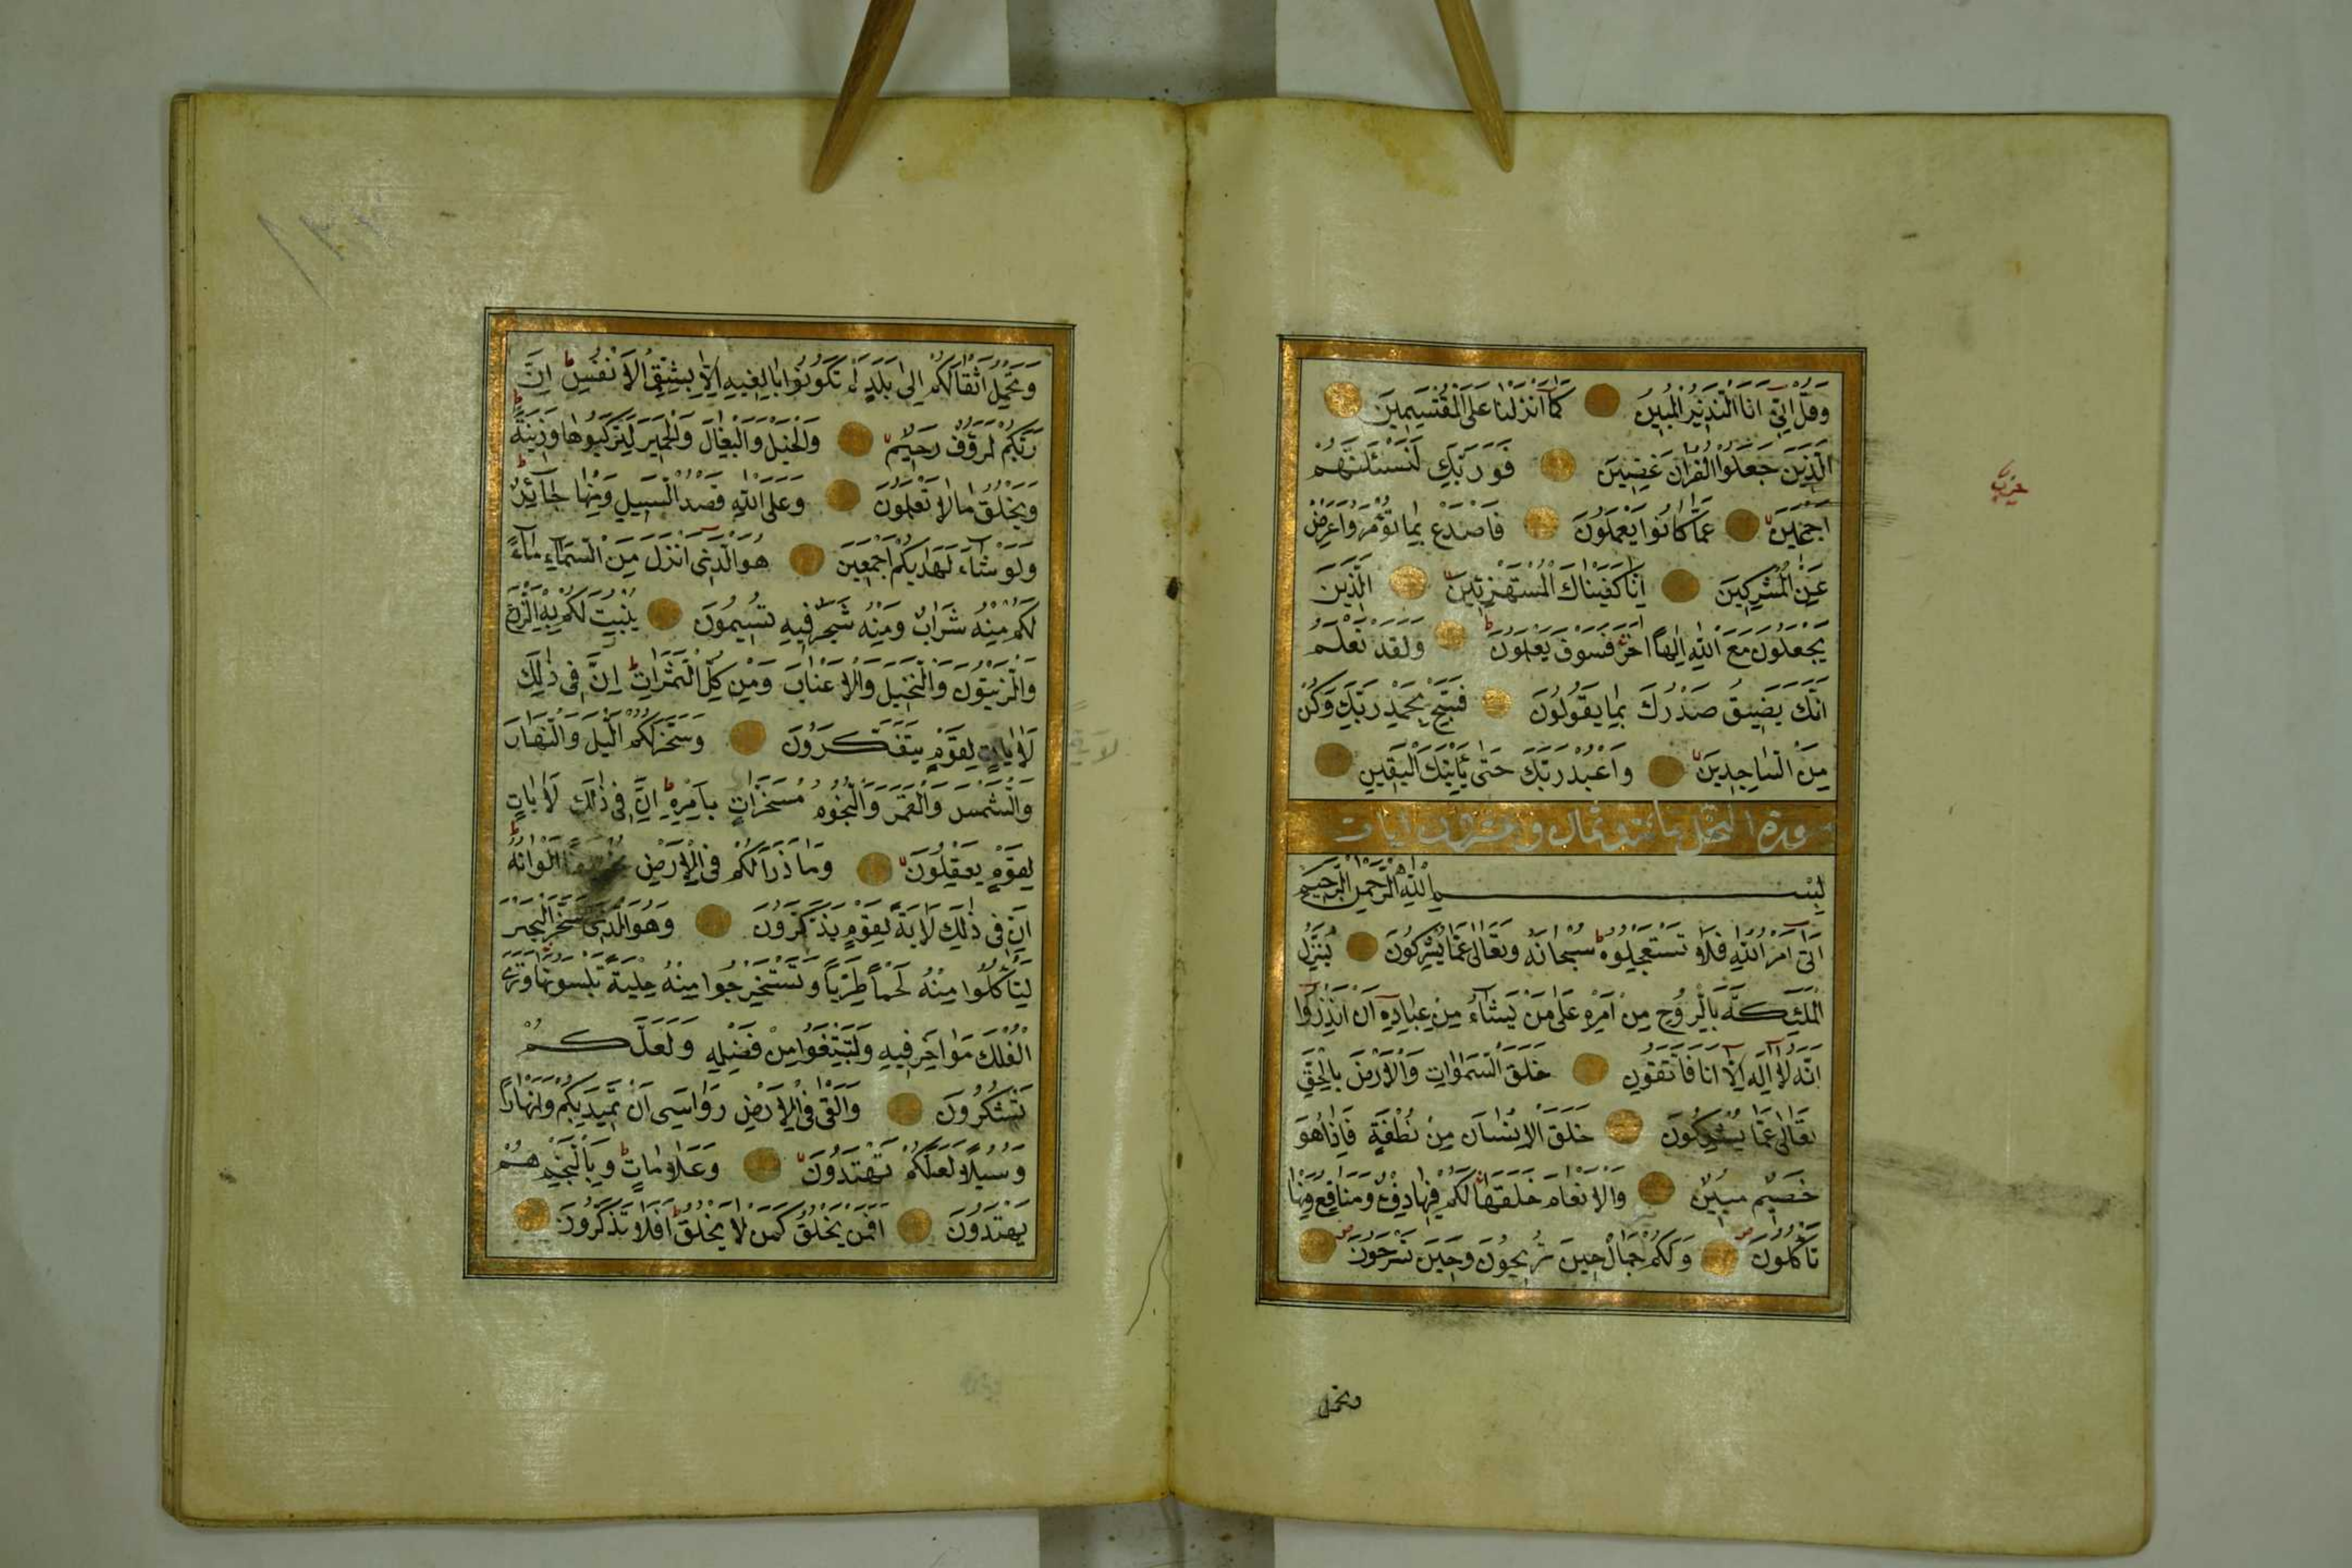 وَقُلْ اِنّٓي اَنَا النَّذِيرُ الْمُبِينُ كَمَٓا اَنْزَلْنَا عَلَى الْمُقْتَسِمِينَ
اَلَّذِينَ جَعَلُوا الْقُرْاٰنَ عِضِينَ فَوَرَبِّكَ لَنَسْئَلَنَّهُمْ
اَجْمَعِينَ عَمَّا كَانُوا يَعْمَلُونَ فَاصْدَعْ بِمَا تُؤْمَرُ وَاَعْرِضْ
عَنِ الْمُشْرِكِينَ اِنَّا كَفَيْنَاكَ الْمُسْتَهْزِئِينَ اَلَّذِينَ
يَجْعَلُونَ مَعَ اللّٰهِ اِلٰهًا اٰخَرَ فَسَوْفَ يَعْلَمُونَ وَلَقَدْ نَعْلَمُ
اَنَّكَ يَضِيقُ صَدْرُكَ بِمَا يَقُولُونَ فَسَبِّحْ بِحَمْدِ رَبِّكَ وَكُنْ
مِنَ السَّاجِدِينَ وَاعْبُدْ رَبَّكَ حَتّٰى يَأْتِيَكَ الْيَقِينُ
سورة النحل مائة وثمان وعشرون ايات
بِسْمِ اللّٰهِ الرَّحْمٰنِ الرَّحِيمِ
اَتٰٓى اَمْرُ اللّٰهِ فَلَا تَسْتَعْجِلُوهُ سُبْحَانَهُ وَتَعَالٰى عَمَّا يُشْرِكُونَ يُنَزِّلُ
الْمَلٰٓئِكَةَ بِالرُّوحِ مِنْ اَمْرِهِ عَلٰى مَنْ يَشَٓاءُ مِنْ عِبَادِهِٓ اَنْ اَنْذِرُٓوا
اَنَّهُ لَٓا اِلٰهَ اِلَّٓا اَنَا فَاتَّقُونِ خَلَقَ السَّمٰوَاتِ وَالْاَرْضَ بِالْحَقِّ
تَعَالٰى عَمَّا يُشْرِكُونَ خَلَقَ الْاِنْسَانَ مِنْ نُطْفَةٍ فَاِذَا هُوَ
خَصِيمٌ مُبِينٌ وَالْاَنْعَامَ خَلَقَهَا لَكُمْ فِيهَا دِفْءٌ وَمَنَافِعُ وَمِنْهَا
تَأْكُلُونَ وَلَكُمْ فِيهَا جَمَالٌ حِينَ تُرِيحُونَ وَحِينَ تَسْرَحُونَ
وتحمل
حزب
وَتَحْمِلُ اَثْقَالَكُمْ اِلٰى بَلَدٍ لَمْ تَكُونُوا بَالِغِيهِ اِلَّا بِشِقِّ الْاَنْفُسِ اِنَّ
رَبَّكُمْ لَرَؤُفٌ رَحِيمٌ وَالْخَيْلَ وَالْبِغَالَ وَالْحَمِيرَ لِتَرْكَبُوهَا وَزِينَةً
وَيَخْلُقُ مَا لَا تَعْلَمُونَ وَعَلَى اللّٰهِ قَصْدُ السَّبِيلِ وَمِنْهَا جَٓائِرٌ
وَلَوْ شَٓاءَ لَهَدٰيكُمْ اَجْمَعِينَ هُوَ الَّذِٓي اَنْزَلَ مِنَ السَّمَٓاءِ مَٓاءً
لَكُمْ مِنْهُ شَرَابٌ وَمِنْهُ شَجَرٌ فِيهِ تُسِيمُونَ يُنْبِتُ لَكُمْ بِهِ الزَّرْعَ
وَالزَّيْتُونَ وَالنَّخِيلَ وَالْاَعْنَابَ وَمِنْ كُلِّ الثَّمَرَاتِ اِنَّ فِي ذٰلِكَ
لَاٰيَاتٍ لِقَوْمٍ يَتَفَكَّرُونَ وَسَخَّرَ لَكُمُ الَّيْلَ وَالنَّهَارَ
وَالشَّمْسَ وَالْقَمَرَ وَالنُّجُومُ مُسَخَّرَاتٌ بِاَمْرِهِ اِنَّ فِي ذٰلِكَ لَاٰيَاتٍ
لِقَوْمٍ يَعْقِلُونَ وَمَا ذَرَاَ لَكُمْ فِي الْاَرْضِ مُخْتَلِفًا اَلْوَانُهُ
اِنَّ فِي ذٰلِكَ لَاٰيَةً لِقَوْمٍ يَذَّكَّرُونَ وَهُوَ الَّذِي سَخَّرَ الْبَحْرَ
لِتَأْكُلُوا مِنْهُ لَحْمًا طَرِيًّا وَتَسْتَخْرِجُوا مِنْهُ حِلْيَةً تَلْبَسُونَهَا وَتَرَى
الْفُلْكَ مَوَاخِرَ فِيهِ وَلِتَبْتَغُوا مِنْ فَضْلِهِ وَلَعَلَّكُمْ
تَشْكُرُونَ وَاَلْقٰى فِي الْاَرْضِ رَوَاسِيَ اَنْ تَمِيدَ بِكُمْ وَاَنْهَارًا
وَسُبُلًا لَعَلَّكُمْ تَهْتَدُونَ وَعَلَامَاتٍ وَبِالنَّجْمِ هُمْ
يَهْتَدُونَ اَفَمَنْ يَخْلُقُ كَمَنْ لَا يَخْلُقُ اَفَلَا تَذَكَّرُونَ